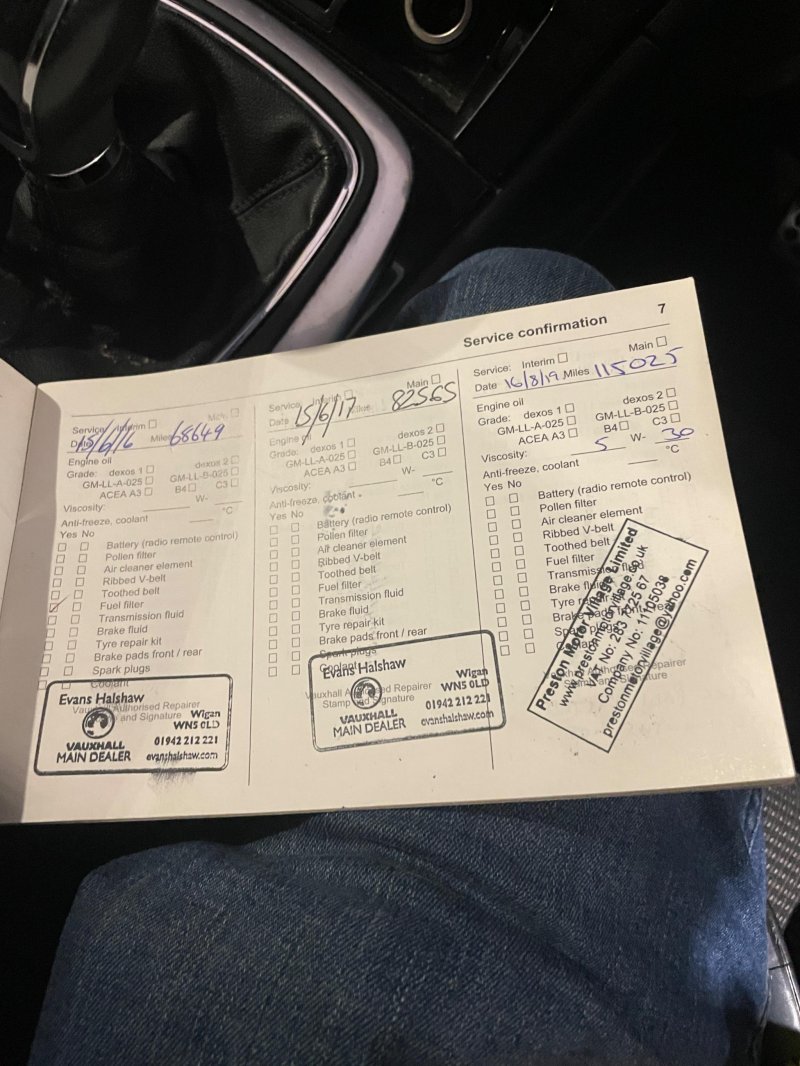 Service confirmation 7
Service: Interim
Date 15/6/16 Miles 68649
Engine oil
Grade: dexos 1 dexos 2
GM-LL-A-025 GM-LL-B-025
ACEA A3 B4 C3
Viscosity: W-
Anti-freeze, coolant °C
Yes No
Battery (radio remote control)
Pollen filter
Air cleaner element
Ribbed V-belt
Toothed belt
Fuel filter
Transmission fluid
Brake fluid
Tyre repair kit
Brake pads front / rear
Spark plugs
Coolant
Vauxhall Authorised Repairer
Stamp and Signature
Evans Halshaw
Wigan
WN5 0LD
VAUXHALL
MAIN DEALER
01942 212 221
evanshalshaw.com
Service: Interim Main
Date 15/6/17 Miles 82565
Engine oil
Grade: dexos 1 dexos 2
GM-LL-A-025 GM-LL-B-025
ACEA A3 B4 C3
Viscosity: W-
Anti-freeze, coolant °C
Yes No
Battery (radio remote control)
Pollen filter
Air cleaner element
Ribbed V-belt
Toothed belt
Fuel filter
Transmission fluid
Brake fluid
Tyre repair kit
Brake pads front / rear
Spark plugs
Coolant
Vauxhall Authorised Repairer
Stamp and Signature
Evans Halshaw
Wigan
WN5 0LD
VAUXHALL
MAIN DEALER
01942 212 221
evanshalshaw.com
Service: Interim Main
Date 16/8/19 Miles 115025
Engine oil
Grade: dexos 1 dexos 2
GM-LL-A-025 GM-LL-B-025
ACEA A3 B4 C3
Viscosity: 5 W- 30
Anti-freeze, coolant °C
Yes No
Battery (radio remote control)
Pollen filter
Air cleaner element
Ribbed V-belt
Toothed belt
Fuel filter
Transmission fluid
Brake fluid
Tyre repair kit
Brake pads front / rear
Spark plugs
Preston Motor Village Limited
www.prestonmotorvillage.co.uk
Company No: 11105038
prestonmotorvillage@yahoo.com